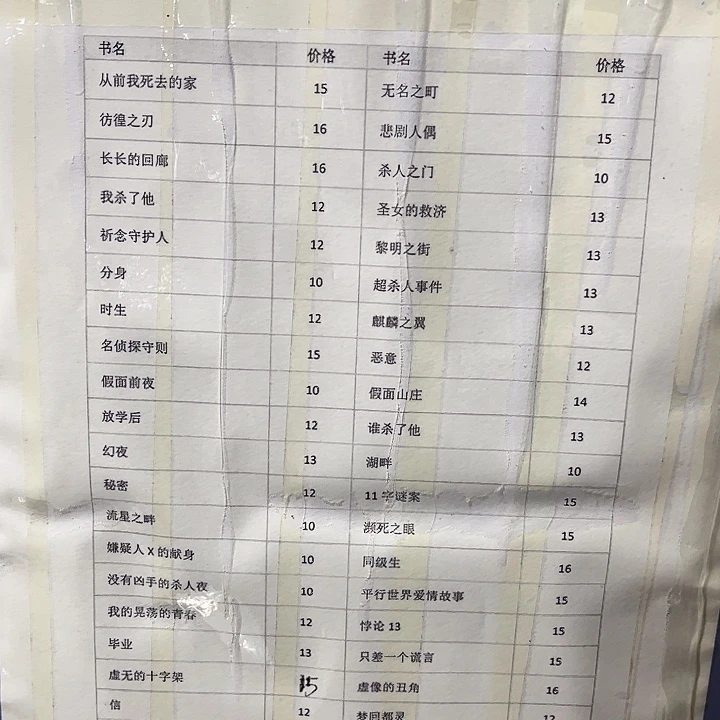 书名 价格 书名 价格
从前我死去的家 15 无名之町 12
彷徨之刃 16 悲剧人偶 15
长长的回廊 16 杀人之门 10
我杀了他 12 圣女的救济 13
祈念守护人 12 黎明之街 13
分身 10 超杀人事件 13
时生 12 麒麟之翼 13
名侦探守则 15 恶意 12
假面前夜 10 假面山庄 14
放学后 12 谁杀了他 13
幻夜 13 湖畔 10
秘密 12 11字谜案 15
流星之畔 10 濒死之眼 15
嫌疑人X的献身 10 同级生 16
没有凶手的杀人夜 10 平行世界爱情故事 15
我的晃荡的青春 12 悖论13 15
毕业 13 只差一个谎言 15
虚无的十字架 15 虚像的丑角 16
信 12 梦回都灵 12